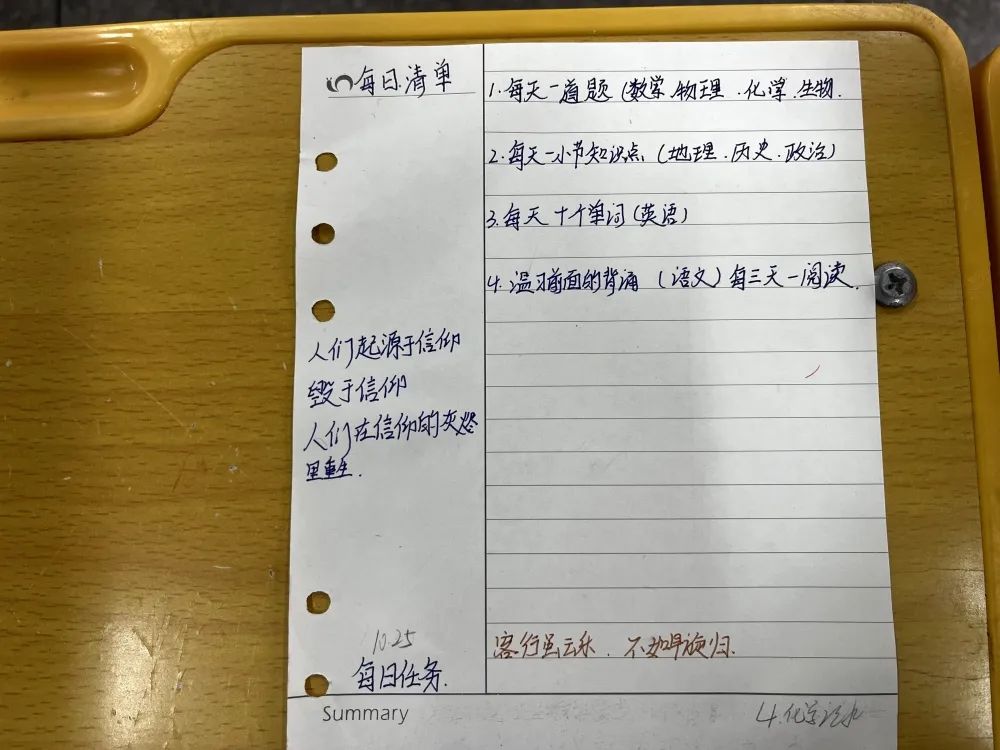 每日清单
1. 每天一道题 (数学.物理.化学.生物.
2. 每天一小节知识点 (地理.历史.政治)
3. 每天十个单词 (英语)
4. 温习前面的背诵 (语文) 每三天一阅读.
人们起源于信仰
毁于信仰
人们在信仰的灰烬
里重生.
10.25
每日任务.
客行虽云乐. 不如早旋归.
Summary
4.化学